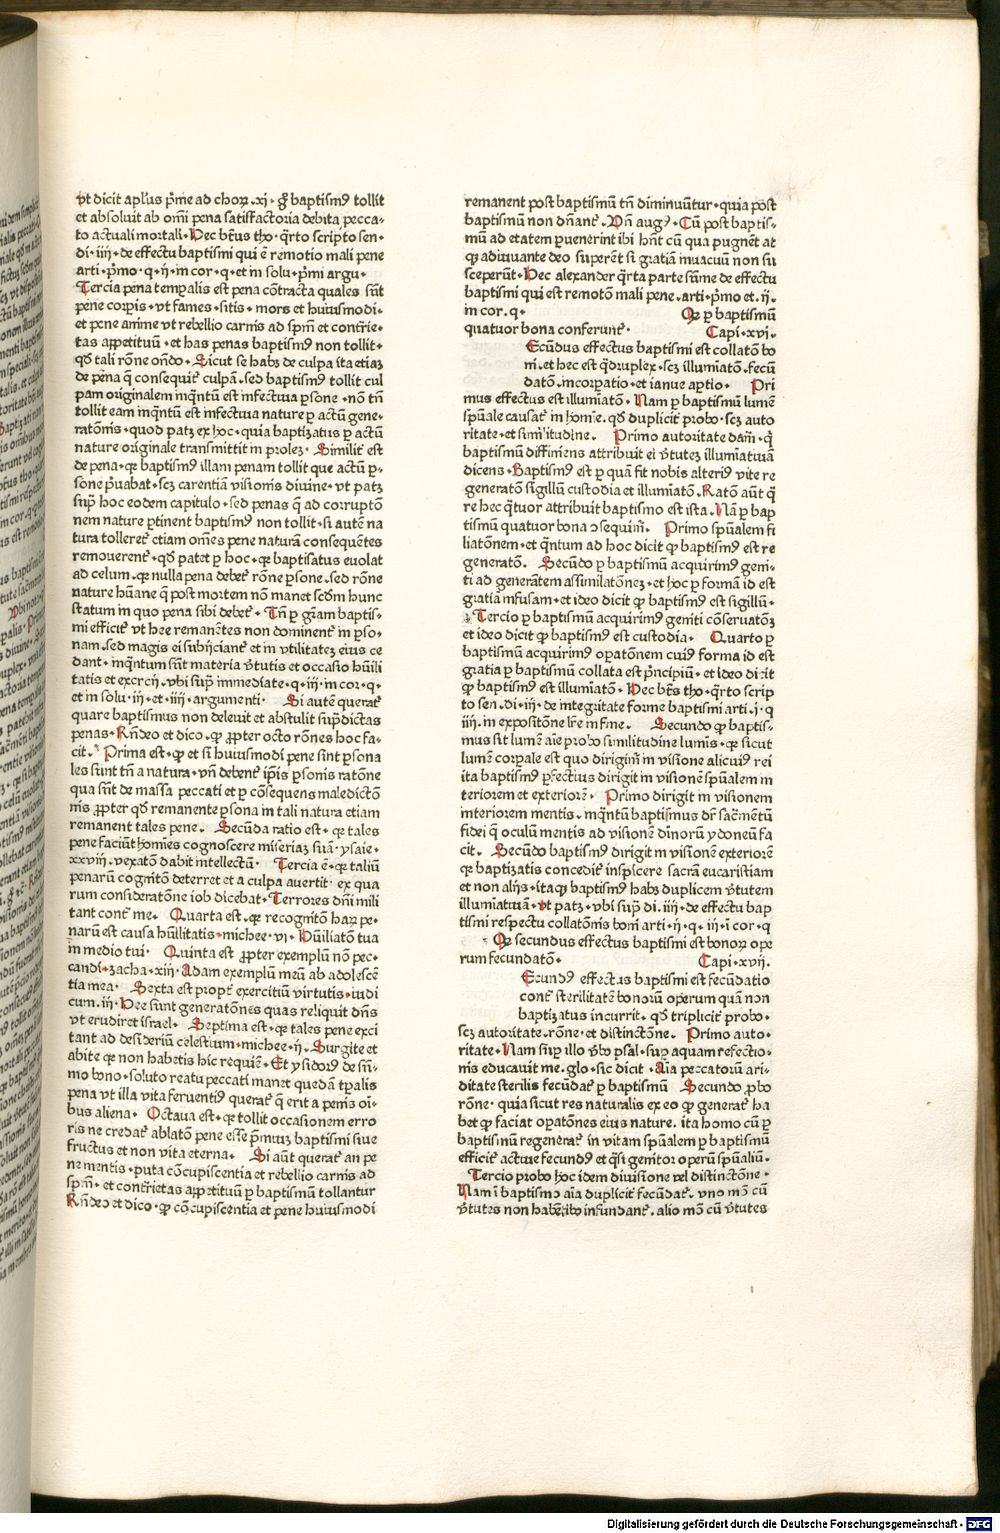 vt dicit apl'us p̄me ad choꝝ .xi. g̊ baptism9 tollit
et absoluit ab om̄i pena satisfactoria debita pecca⸗
to actuali mortali. Hec bt̄us tho. q̄rto scripto sen⸗
di. iiii. de effectu baptismi qui ē remotio mali pene
arti. p̄mo. q. ii. in cor. q. et in solu. p̄mi argu.
Tercia pena tempalis est pena cōtracta quales sūt
pene corpis. vt fames. sitis. mors et huiusmodi.
et pene anime vt rebellio carnis ad sp̄m et contrie⸗
tas appetituū. et has penas baptism9 non tollit.
qđ tali rōne on̄do. Sicut se habꝫ de culpa ita etiaꝫ
de pēna q̄ consequit̄ culpā. sed baptism9 tollit cul
pam originalem inq̄ntū est infectiua psone. nō tn̄
tollit eam inq̄ntū est infectiua nature p actū gene⸗
ratōnis. quod patꝫ ex hoc. quia baptizatus p actū
nature originale transmittit in prolez. Similit̄ est
de pena. qꝛ baptism9 illam penam tollit que actū p⸗
sone p̄uabat. scꝫ carentiā visionis diuine. vt patꝫ
sup̄ hoc eodem capitulo. sed penas q̄ ad corruptō
nem nature ptinent baptism9 non tollit. si autē na
tura tolleret̄ etiam om̄es pene naturā consequētes
remouerent̄. qđ patet p hoc. qꝛ baptisatus euolat
ad celum. qꝛ nulla pena debet̄ rōne psone. sed rōne
nature hūane q̄ post mortem nō manet scđm hunc
statum in quo pena sibi debet̄. Tn̄ p gr̄am baptis⸗
mi efficit̄ vt hee remanētes non dominent̄ in pso⸗
nam. sed magis ei subijciant̄ et in vtilitatez eius ce
dant. inq̄ntum sūt materia v̄tutis et occasio hūili
tatis et exercii. vbi sup̄ immediate. q. iii. in cor. q.
et in solu. iii. et. iiii. argumenti. Si autē querat̄
quare baptismus non deleuit et abstulit sup̄dictas
penas. Rn̄deo et dico. qꝙ ꝓpter octo rōnes hoc fa⸗
cit. Prima est. qꝙ et si huiusmodi pene sint psona
les sunt tn̄ a natura. vn̄ debent̄ ip̄is psonis ratōne
qua sūt de massa peccati et p cōsequens maledictō
nis ꝓpter qđ remanente psona in tali natura etiam
remanent tales pene. Secūda ratio est. qꝛ tales
pene faciūt hom̄ies cognoscere miseriaz suā. ysaie.
xxviii. vexatō dabit intellectū. Tercia ē. qꝛ taliū
penarū cognitō deterret et a culpa auertit. ex qua
rum consideratōne iob dicebat. Terrores dn̄i mili
tant cont̄ me. Quarta est. qꝛ recognitō haꝝ pe⸗
narū est causa hūilitatis. michee. vi. Hūiliatō tua
in medio tui. Quinta est ꝓpter exemplū nō pec⸗
candi. zacha. xiii. Adam exemplū meū ab adolescē
tia mea. Sexta est propt̄ exercitiū virtutis. iudi
cum. iii. Hee sunt generatōnes quas reliquit dn̄s
vt erudiret israel. Septima est. qꝛ tales pene exci
tant ad desideriū celestium. michee. ii. Surgite et
abite qꝛ non habetis hic requiē. Et ysidorꝰ de sū⸗
mo bono. soluto reatu peccati manet quedā tp̄alis
pena vt illa vita feruentiꝰ querat̄ q̄ erit a penis oī⸗
bus aliena. Octaua est. qꝛ tollit occasionem erro
ris ne credat̄ ablatō pene esse p̄miuꝫ baptismi siue
fructus et non vita eterna. Si aūt querat̄ an pe
ne mentis. puta cōcupiscentia et rebellio carnis ad
sp̄m. et contrietas appetituū p baptismū tollantur
Rn̄deo et dico. qꝙ cōcupiscentia et pene huiusmodi
remanent post baptismū tn̄ diminuūtur. quia post
baptismū non dn̄ant̄. Vn̄ augꝰ. Cū post baptis⸗
mū ad etatem puenerint ibi hn̄t cū qua pugnēt at
qꝙ adiuuante deo superēt si gratiā inuacuū non su
sceperūt. Hec alexander q̄rta parte sūme de effectu
baptismi qui est remotōm mali pene. arti. p̄mo et. ii.
in cor. q. Qꝛ p baptismū
quatuor bona conferunt̄. Capi. xvi.
Ecūdus effectus baptismi est collatōm bo
ni. et hec est q̄druplex. scꝫ illumiatō. fecū
datō. incorpatio. et ianue aptio. Pri
mus effectus est illumiatō. Nam p baptismū lumē
spūale causat̄ in hom̄ie. qđ duplicit̄ probo. scꝫ auto
ritate. et similitudine. Primo autoritate dam̄. q̄
baptismū diffiniens attribuit ei v̄tutez illumiatiuā
dicens. Baptismꝰ est p quā fit nobis alteriꝰ vite re
generatō sigillū custodia et illumiatō. Ratō aūt q̄
re hec q̄tuor attribuit baptismo est ista. Nā p bap
tismū quatuor bona ɔsequim̄. Primo spūalem fi
liatōnem. et q̄ntum ad hoc dicit qꝙ baptismꝰ est re
generatō. Secūdo p baptismū acquirimꝰ geni⸗
ti ad generātem assimilatōnez. et hoc p formā id est
gratiā infusam. et ideo dicit qꝙ baptismꝰ est sigillū.
Tercio p baptismū acquirimꝰ geniti cōseruatōꝫ
et ideo dicit qꝙ baptismꝰ est custodia. Quarto p
baptismū acquirimꝰ opatōnem cuiꝰ forma id est
gratia p baptismū collata est p̄ncipiū. et ideo dicit
qꝙ baptismꝰ est illumiatō. Hec bt̄s tho. q̄rto scrip
to sen. di. iii. de integritate forme baptismi arti. j. q
iiii. in expositōne lr̄e in fine. Secundo qꝙ baptis⸗
mus sit lumē aīe probo similitudine lumīs. qꝛ sicut
lumē corpale est quo dirigim̄ in visiōe alicuiꝰ rei
ita baptismꝰ pfectius dirigit in visionē spūalem in
teriorem et exteriorē. Primo dirigit in visionem
interiorem mentis. inq̄ntū baptismus dr̄ sacm̄etū
fidei q̄ oculū mentis ad visionē diuinorū ydoneū fa
cit. Secūdo baptismꝰ dirigit in visionē exteriorē
qꝛ baptizatis concedit̄ inspicere sacrā eucaristiam
et non alijs. itaqꝫ baptismꝰ habꝫ duplicem v̄tutem
illumiatiuā. vt patꝫ. vbi sup̄ di. iiii. de effectu bap
tismi respectu collatōnis boni arti. ii. q. iii. i cor. q
Qꝛ secundus effectus baptismi est bonoꝝ ope
rum fecundatō. Capi. xvii.
Ecundꝰ effectus baptismi est fecūdatio
cont̄ sterilitatē bonorū operum quā non
baptizatus incurrit. qđ triplicit̄ probo.
scꝫ autoritate. rōne. et distinctōne. Primo auto⸗
ritate. Nam sup̄ illo v̄bo psal̄. sup̄ aquam refectio⸗
nis educauit me. glo. sic dicit. Aīa peccatorū ari⸗
ditate sterilis fecūdat̄ p baptismū Secundo ꝓbo
rōne. quia sicut res naturalis ex eo qꝙ generat̄ ha
bet qꝙ faciat opatōnes eius nature. ita homo cū p
baptismū regenerat̄ in vitam spūalem p baptismū
efficit̄ actiue fecundꝰ et q̄si genitor operū spūaliū.
Tercio probo hoc idem diuisione vel distinctōne.
Nam ī baptismo aīa duplicit̄ fecūdat̄. vno mō cū
v̄tutes non habētibꝰ infundant̄. alio mō cū v̄tutes
Digitalisierung gefördert durch die Deutsche Forschungsgemeinschaft - DFG